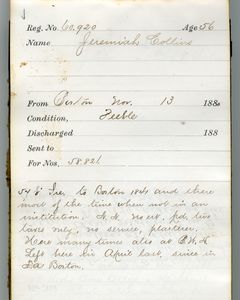 Reg. No. 60,920 Age 56
Name Jeremiah Collins
From Boston Nov. 13 188
Condition, Feeble
Discharged 188
Sent to
For Nos. 58.821
54 S. Ire. to Boston 1841 and there
most of the time when not in an
institution. N. R. no est. pd. two
taxes only, no service, plasterer.
Here many times also at
Left here in April last, since in
Boston.